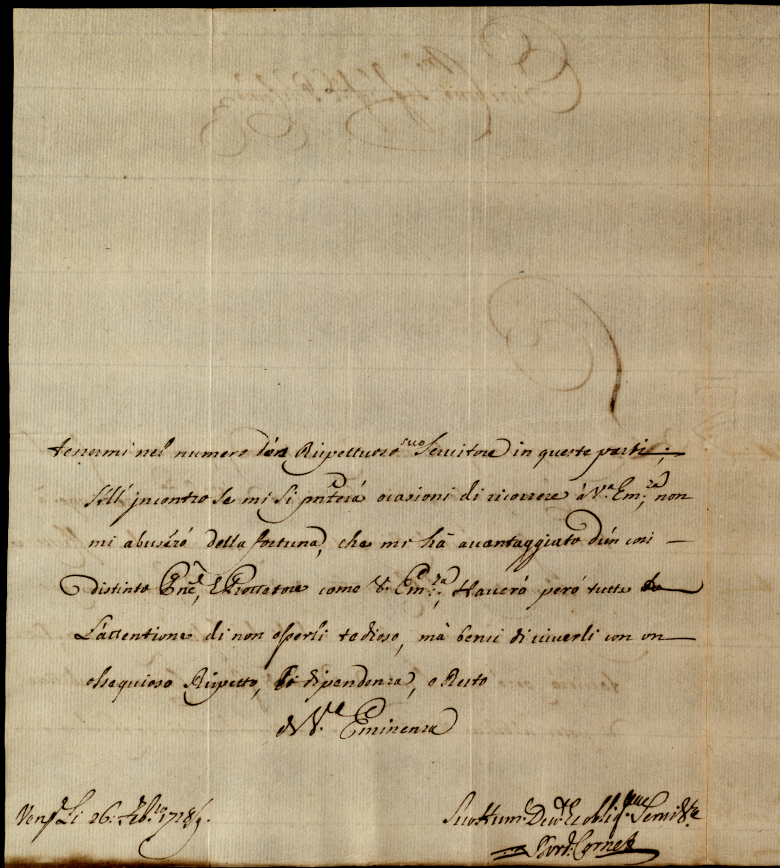 tenermi nel numero d'un Rispettuoso suo Servitore in queste parti;
All' incontro se mi si pnterà ocasioni di ricorrere à V.ª Em.ᶻᵃ, non
mi abuserò della fortuna, che mi hà avantaggiato d'un cosi
distinto Pne, e Prottetore come V. Em.ᶻᵃ, Haverò però tutta
L'attentione di non esserli tedioso, mà bensi di viverli con un
ossequioso Rispetto, dipendenza, e Resto
di V.ª Eminenza
Ven.ª Li 26. Feb.ʳᵒ 1728/9.
Suo Hum.ᵉ Dev.ᵉ et oblig.ᵐᵒ Servi
Cornet